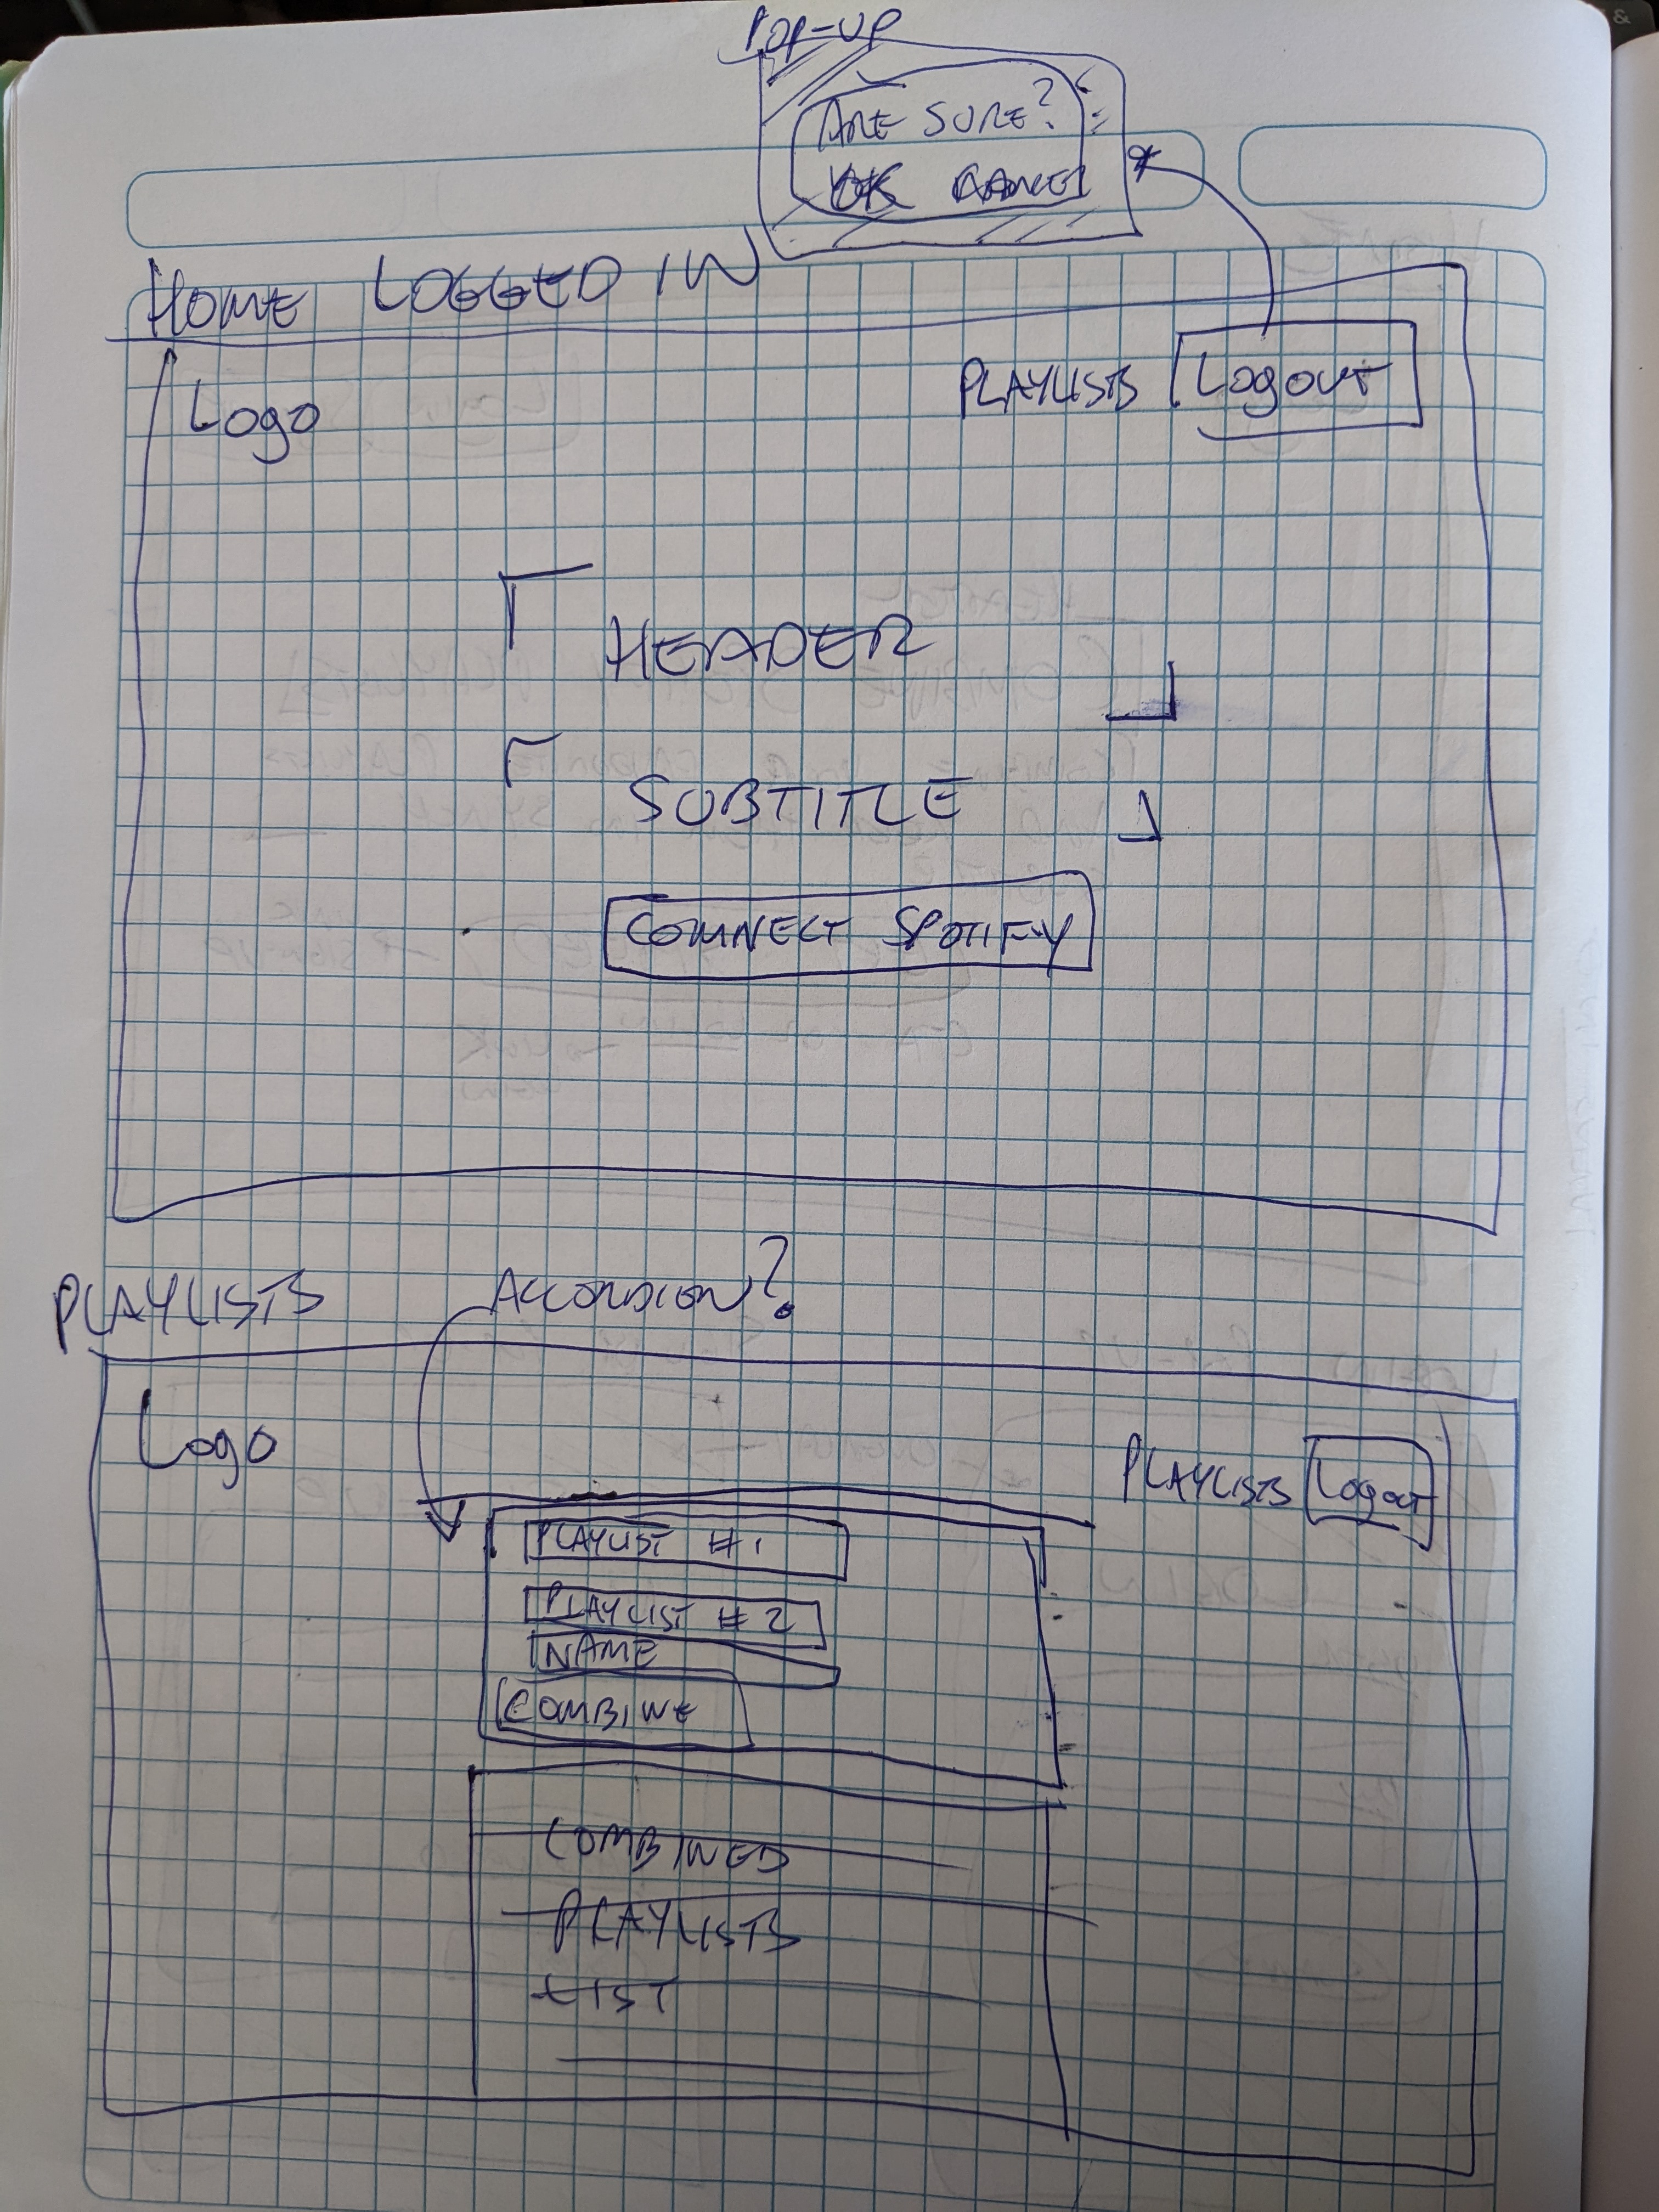 POP-UP
ARE SURE?
OK CANCEL
HOME LOGGED IN
Logo
PLAYLISTS Logout
HEADER
SUBTITLE
CONNECT SPOTIFY
PLAYLISTS
ACCORDION?
Logo
PLAYLISTS Logout
PLAYLIST #1
PLAYLIST #2
NAME
COMBINE
COMBINED
PLAYLISTS
LIST